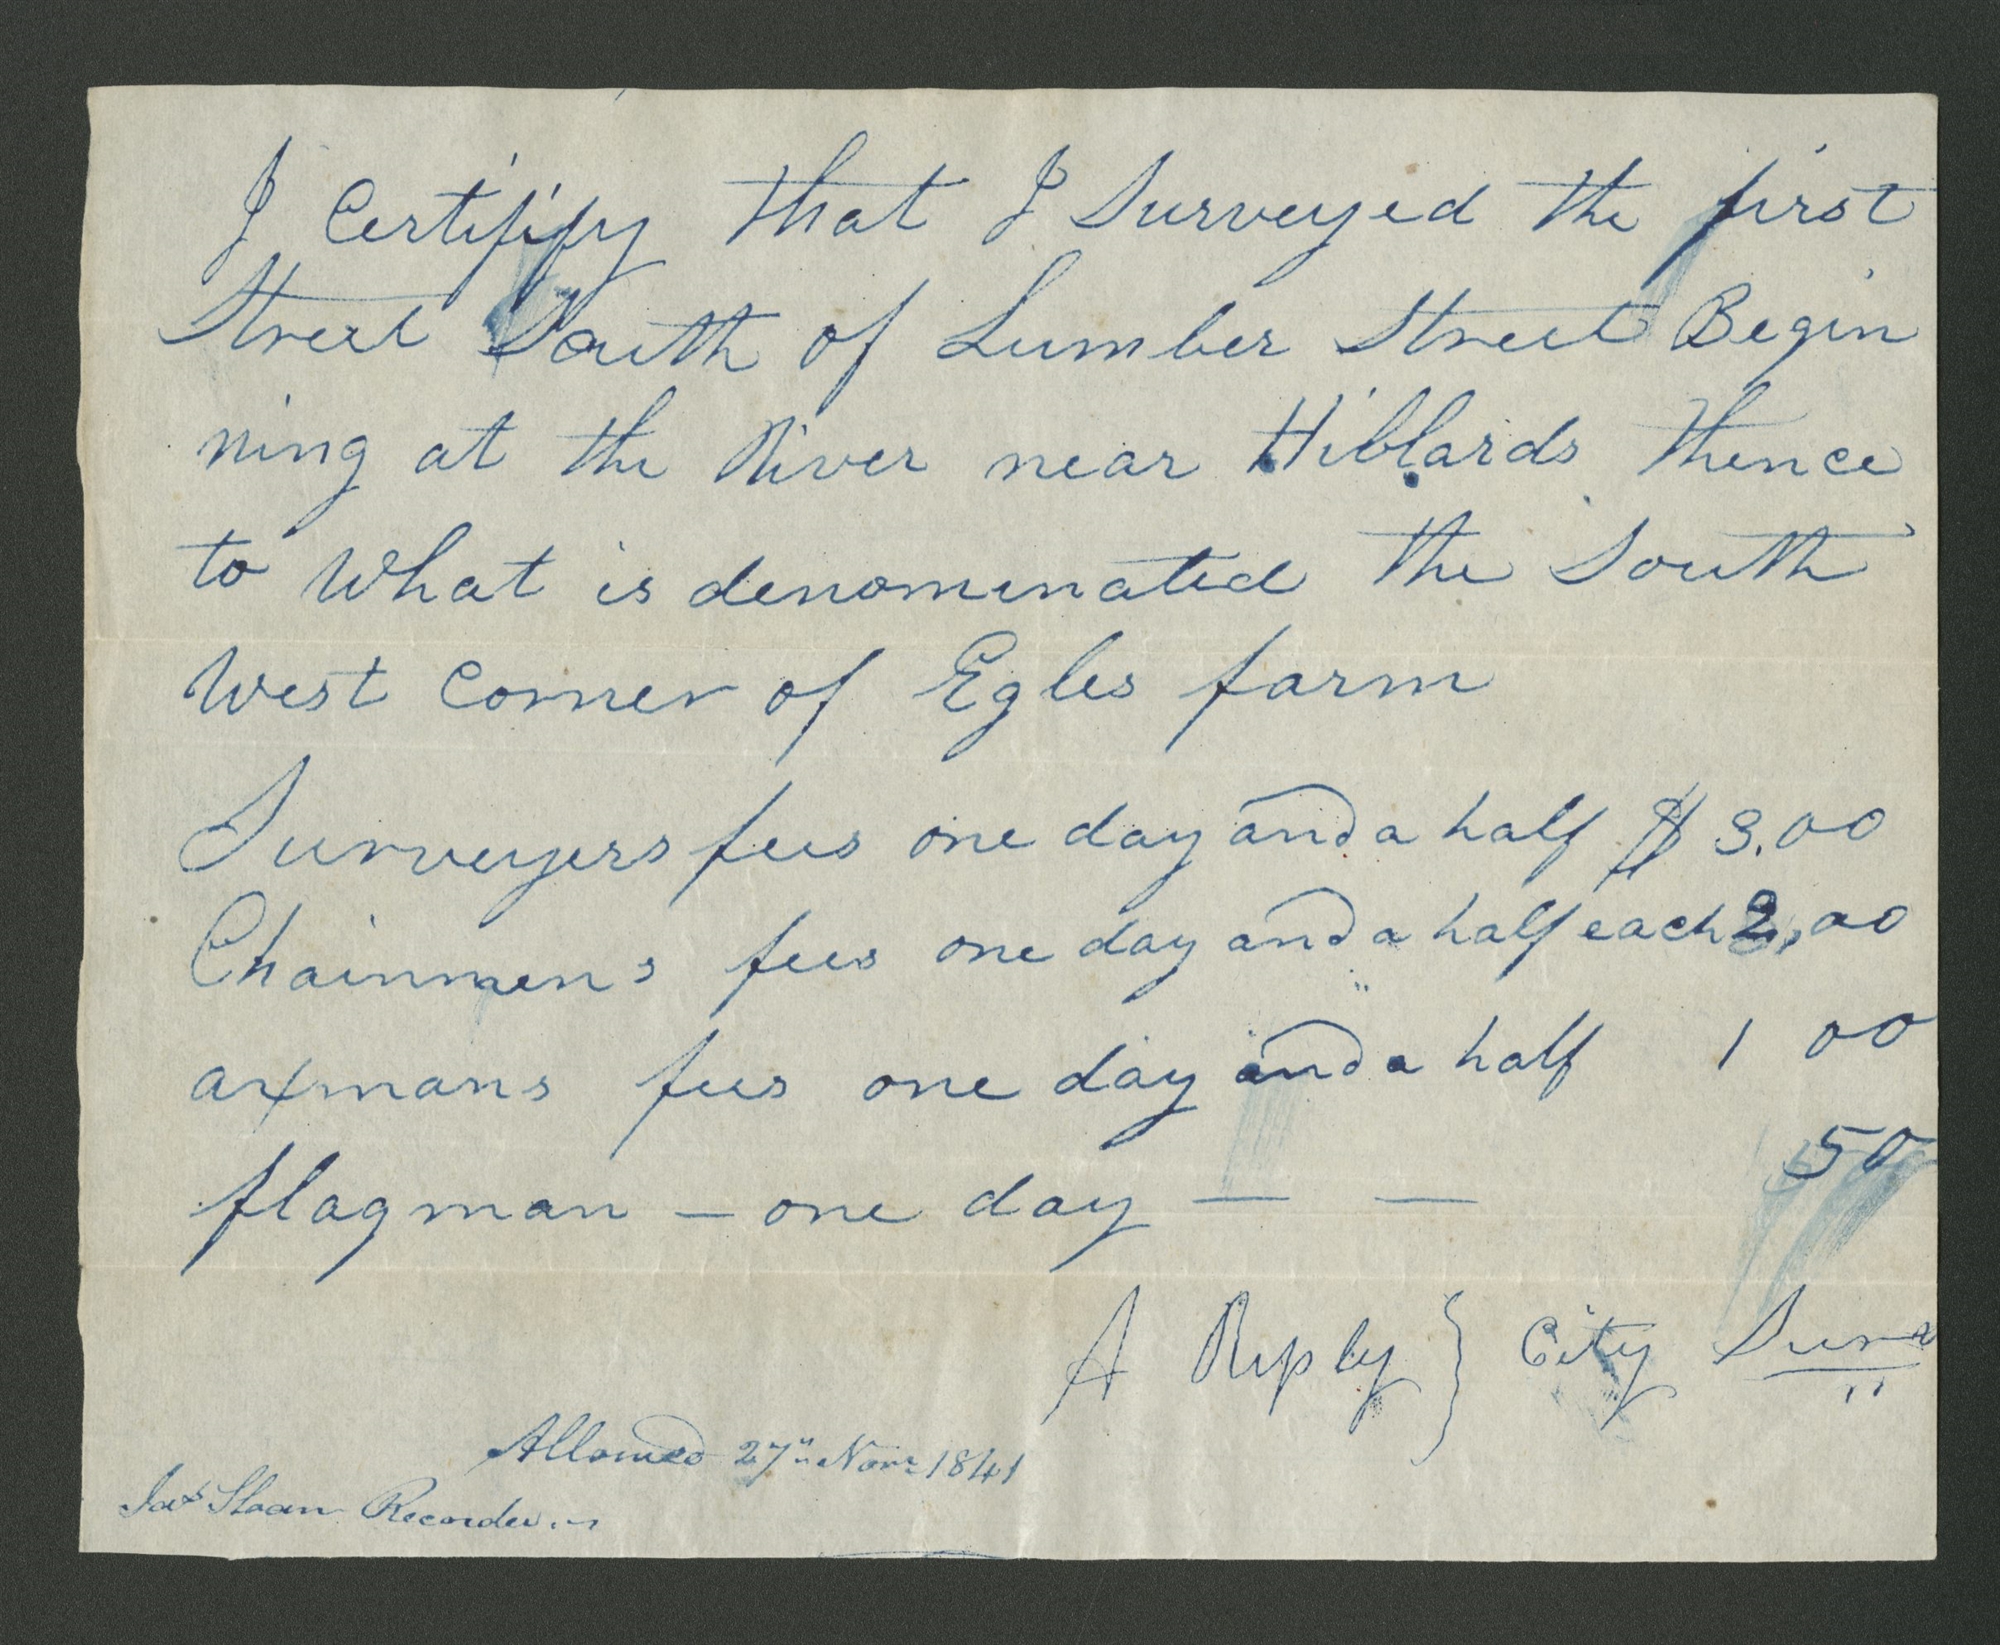 I Certifify that I Surveyed the first
Street South of Lumber Street Begin
ning at the River near Hiblards thence
to What is denominated the South
West Corner of Egles farm
Surveyers fees one day and a half $ 3.00
Chainmens fees one day and a half each 2,00
axmans fees one day and a half 1 00
flagman — one day — — 50
A Riply } City Surv
Allowed 27" Novr 1841
Jas Sloan Recorder